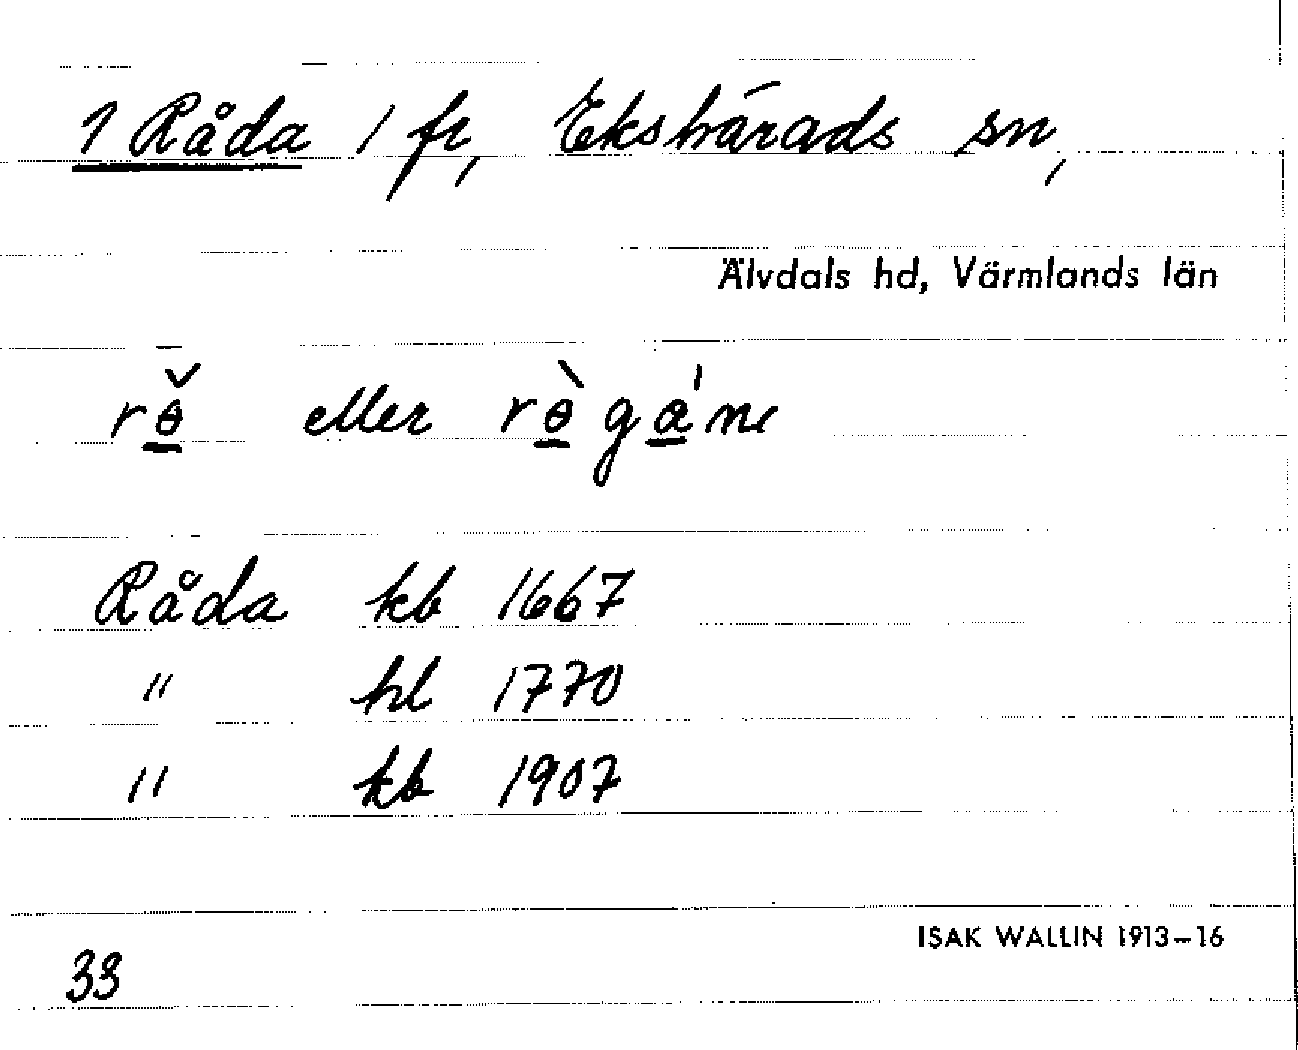 1 Råda 1 fr, Ekshärads sn,
Älvdals hd, Värmlands län
rɵ̲̌ eller rɵ̲̀ga̲̍ne
Råda kb 1667
" hl 1770
" kb 1907
ISAK WALLIN 1913-16
33